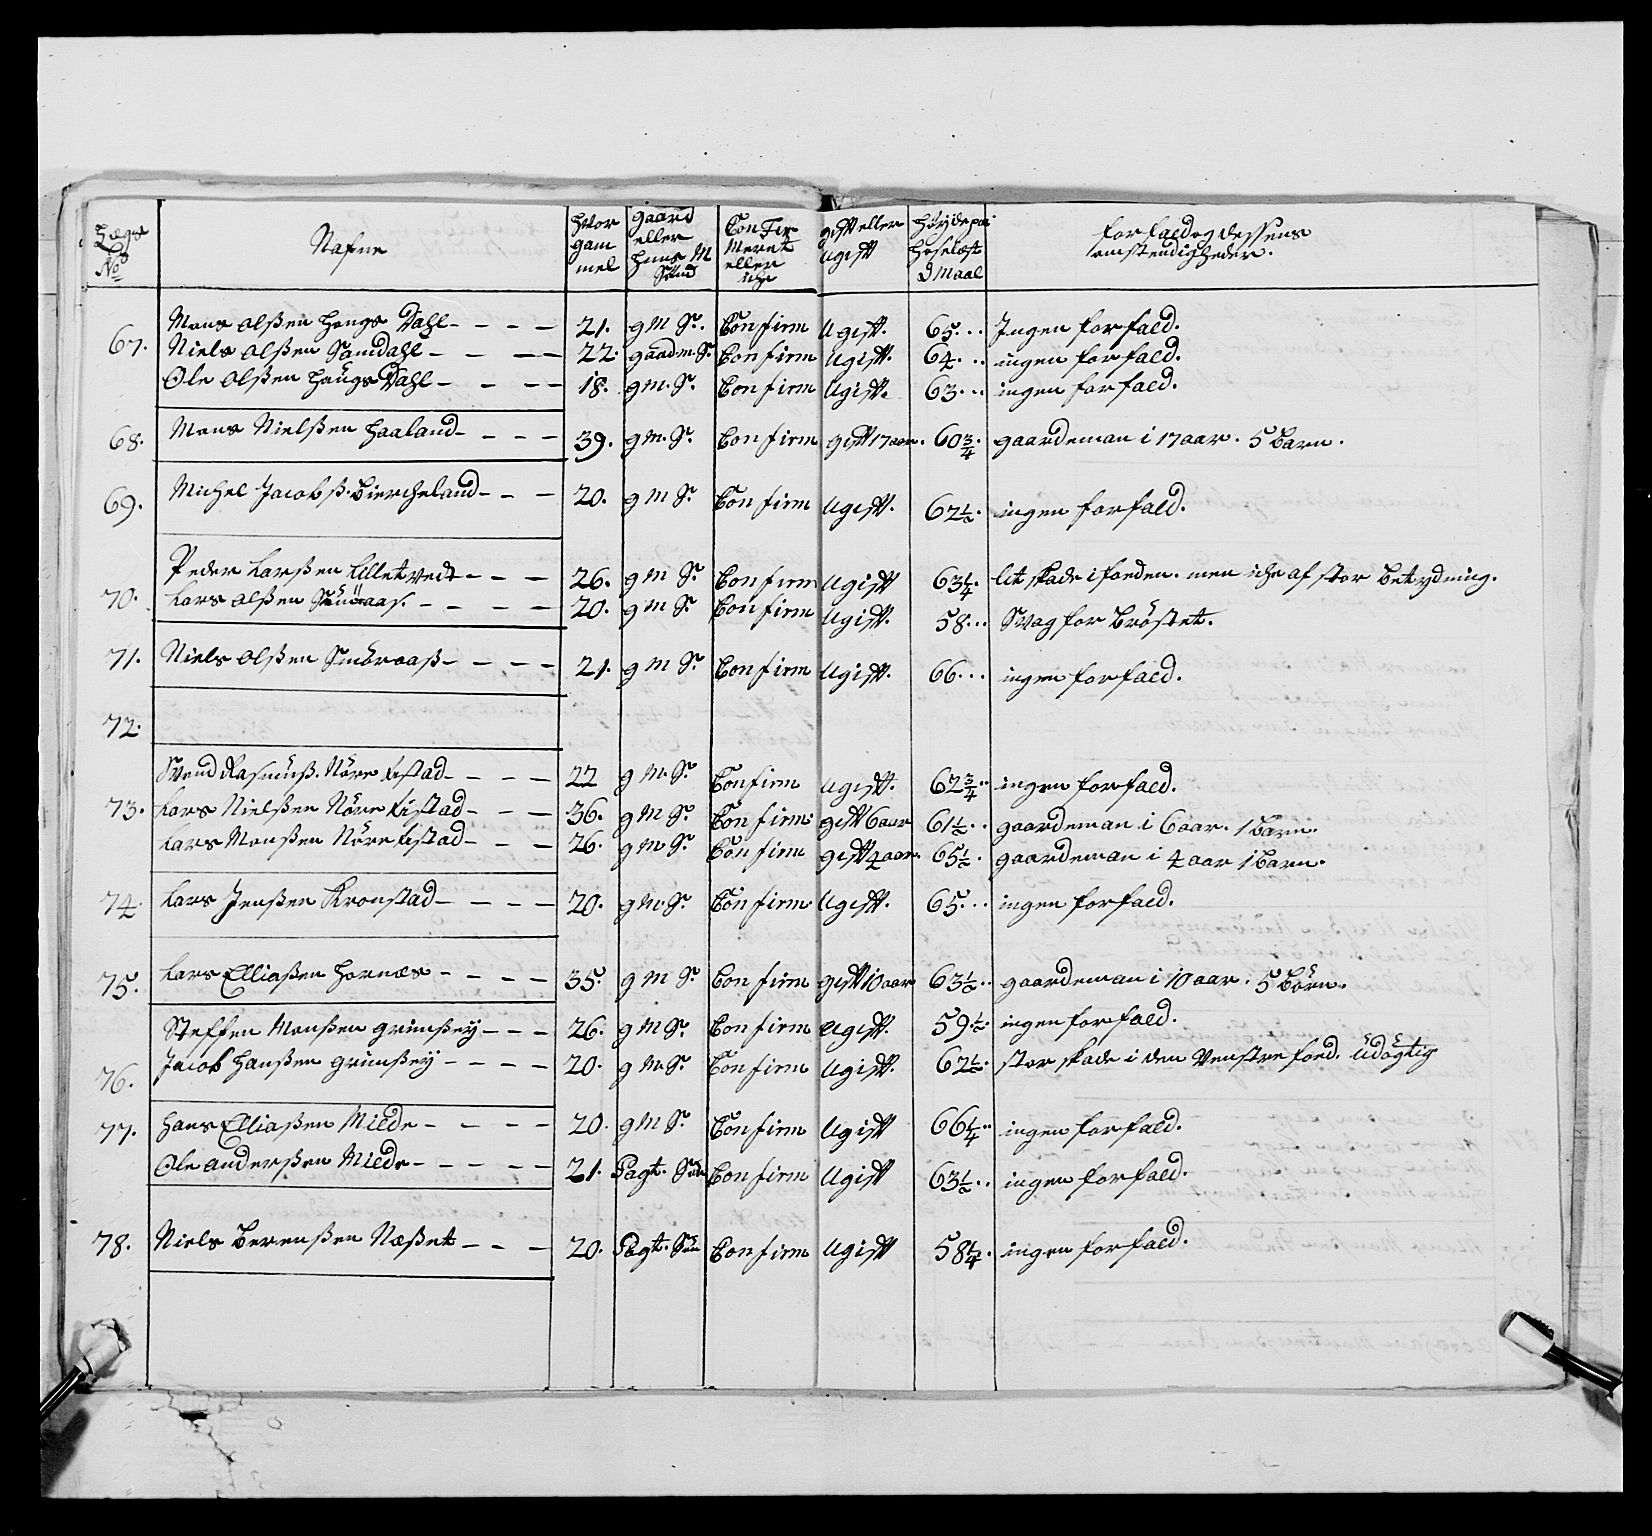 Lægs No
Nafne
hvor gam mel
gaard eller huus M Sönd
Con Fir Meret eller iche
gift eller ugift
høyde paa hoseløst Maal
forfald og dessens omstendigheder.
67. Mons Olßen Hougs Dahl - - - - 21. g M S. Confirm Ugift. 65... Ingen forfald.
Niels Olßen Samdahl - - - - 22. gaardm. S. Confirm Ugift. 64... ingen forfald.
Ole Olßen Haugs Dahl - - - - 18. g M. S. Confirm Ugift. 63... ingen forfald.
68. Mons Nielßen Haaland - - - - 39. g M. S. Confirm gift 17 aar. 60 3/4. gaardeman i 17 aar. 5 Barn.
69. Michel Jacobß. Bircheland - - - 20. g M S. Confirm Ugift. 62 1/2. ingen forfald.
Peder Larßen Lilletvedt - - - 26. g M S. Confirm Ugift 63 1/4. lit skade i foeden. men iche af stor betydning.
70. Lars Olßen Smöraas. - - - - 20. g M S. Confirm Ugift. 58... Svag for Bröstet.
71. Niels Olßen Smöraaß - - - - 21. g M S. Confirm Ugift. 66... ingen forfald.
72.
Svend Rasmusß. Nöre Kistad - - - - 22 g M. S. Confirm Ugift. 62 3/4.. ingen forfald.
73. Lars Nielßen Nöre Kistad - - - 36. g M S. Confirm. gift 6 aar 61 1/2.. gaardeman i 6 aar. 1 Barn.
Lars Monßen Nöre Kistad - - - 26. g M S. Confirm gift 4 aar. 65 1/2. gaardeman i 4 aar 1 Barn.
74. Lars Jenßen Kronstad - - - - 20. g M. S. Confirm. Ugift. 65... ingen forfald.
75. Lars Elliaßen Hornæs - - - - 35. g M S. Confirm gift 10 aar 63 1/2.. gaardeman i 10 aar. 5 Börn.
Steffen Monßen Grimßey - - - 26. g M S. Confirm Ugift. 59 1/2. ingen forfald.
76. Jacob Hanßen Grimßey - - - - 20. g M. S. Confirm Ugift. 62 1/2. stor skade i den Venstre foed. Udögtig
77. Hans Elliaßen Milde - - - - 20. g M S. Confirm Ugift 66 1/4.. ingen forfald.
Ole Anderßen Milde - - - - - 21. Pagt. Sön Confirm Ugift 63 1/2.. ingen forfald.
78. Niels Berenßen Næßet - - - 20. Pagt. Sön Confirm Ugift 58 1/4. ingen forfald.